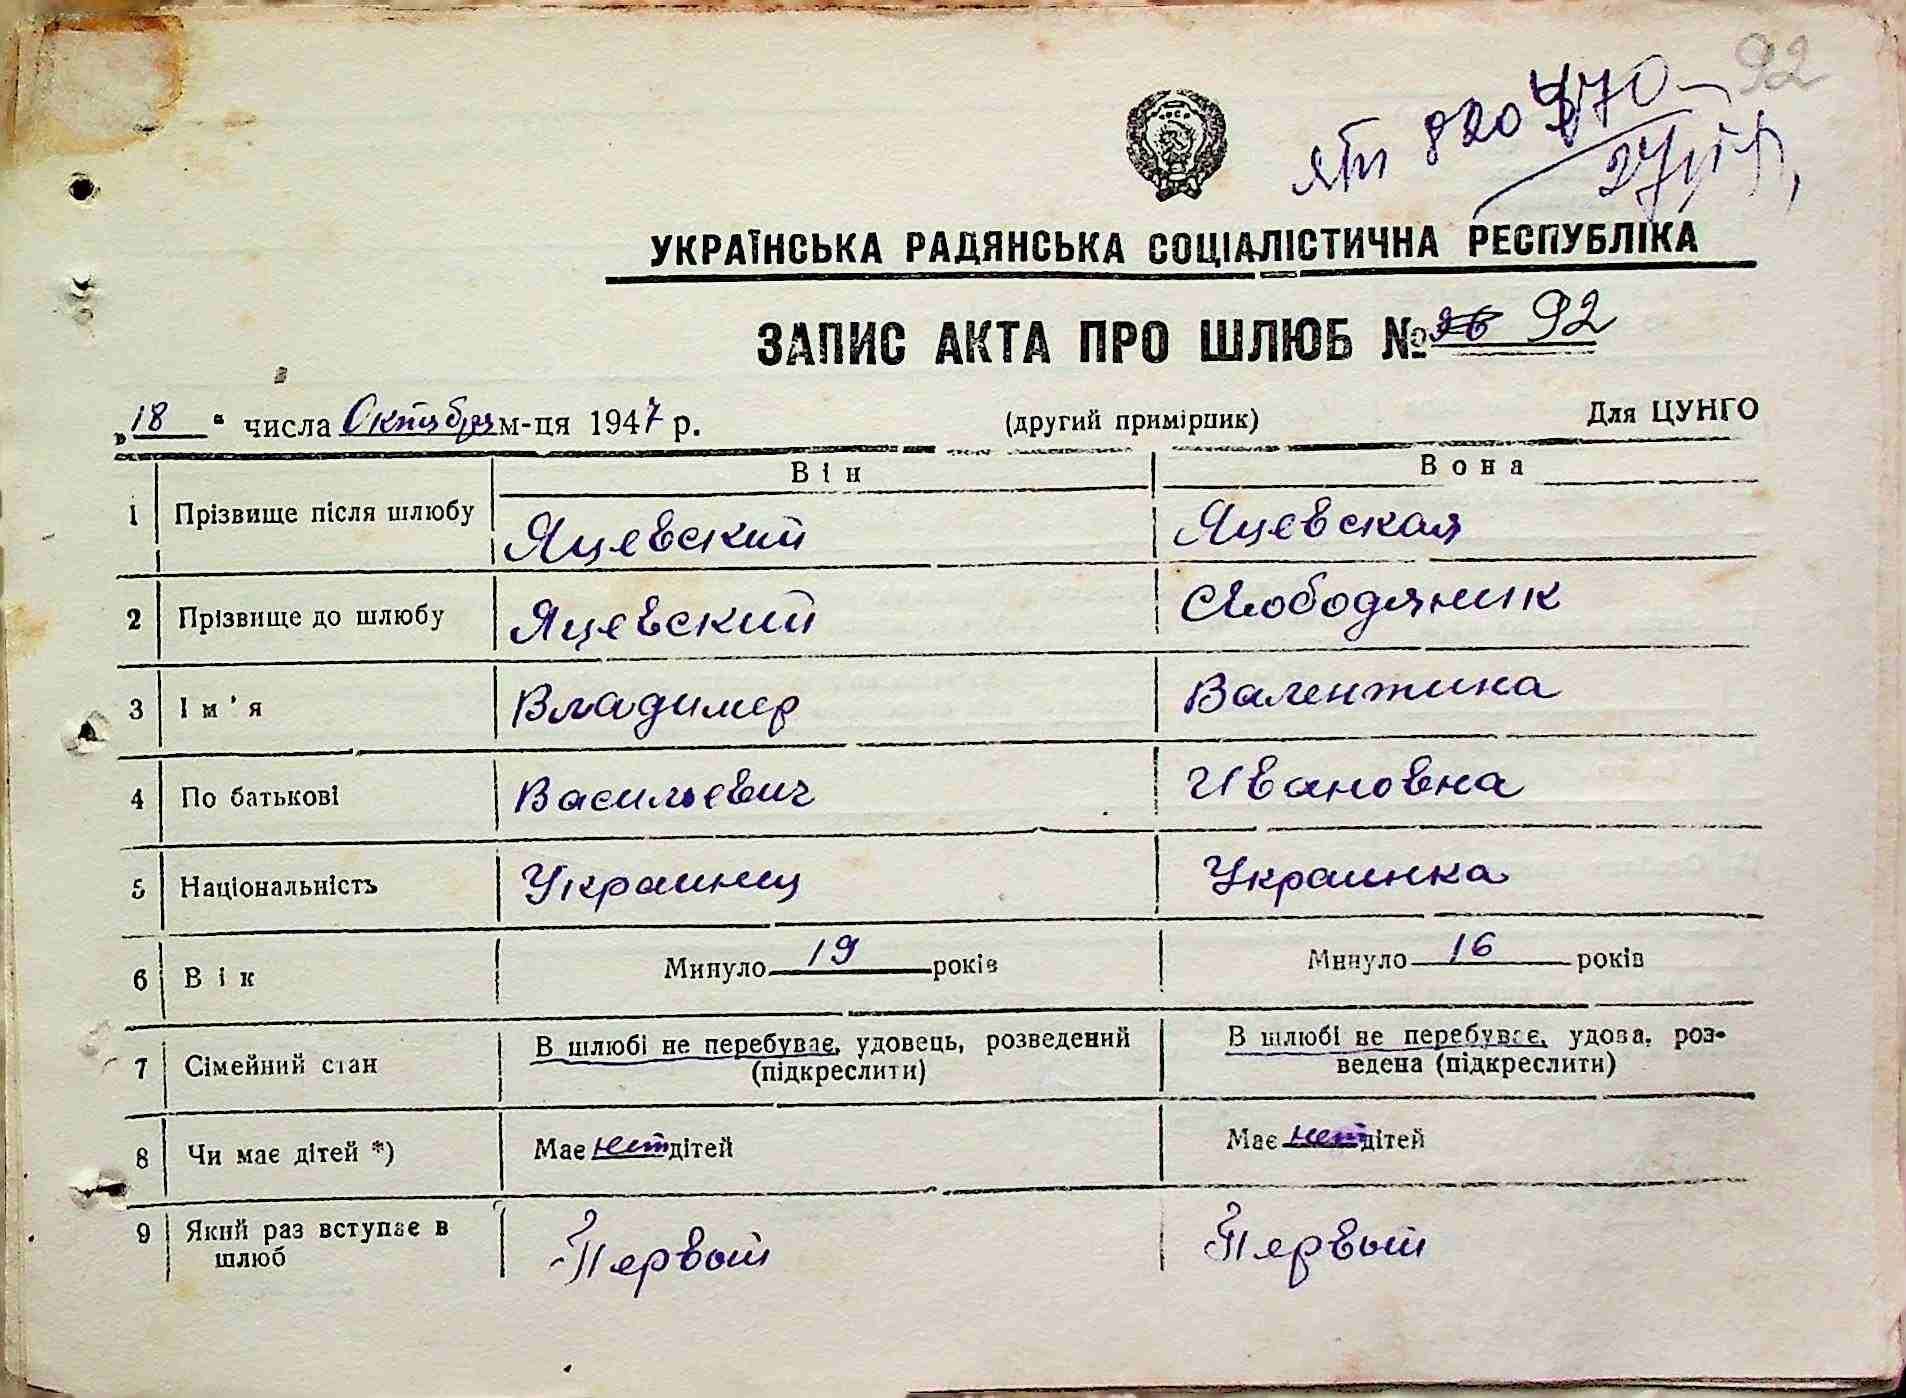 92
ЯТП 820
УКРАЇНСЬКА РАДЯНСЬКА СОЦІАЛІСТИЧНА РЕСПУБЛІКА
ЗАПИС АКТА ПРО ШЛЮБ № 36 92
„ 18 “ числа Октября м-ця 1947 р. (другий примірник) Для ЦУНГО
Він Вона
1 Прізвище після шлюбу Яцевский Яцевская
2 Прізвище до шлюбу Яцевский Слободяник
3 Ім'я Владимер Валентина
4 По батькові Васильевич Ивановна
5 Національність Украинец Украинка
6 Вік Минуло 19 років Минуло 16 років
7 Сімейний стан В шлюбі не перебуває, удовець, розведений (підкреслити) В шлюбі не перебуває, удова, роз-
ведена (підкреслити)
8 Чи має дітей *) Має нет дітей Має нет дітей
9 Який раз вступає в шлюб Первый Первый